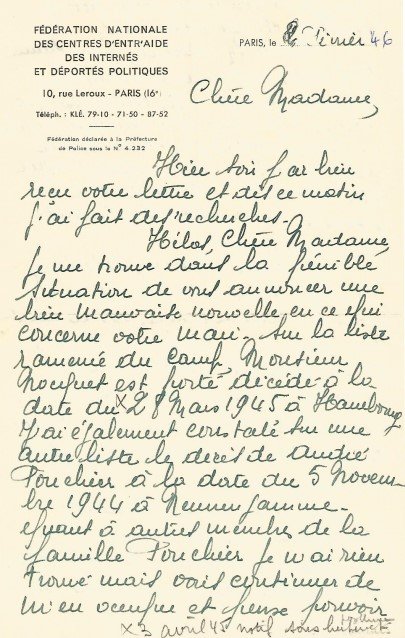 FÉDÉRATION NATIONALE
DES CENTRES D'ENTR'AIDE
DES INTERNÉS
ET DÉPORTÉS POLITIQUES
10, rue Leroux - PARIS (16e)
Téléph. : KLÉ. 79-10 - 71-50 - 87-52
Fédération déclarée à la Préfecture
de Police sous le N° 4.232
PARIS, le 2 Février 46
Chère Madame,
Hier soir j'ai bien
reçu votre lettre et dès ce matin
j'ai fait des recherches.
Hélas, Chère Madame
je me trouve dans la pénible
situation de vous annoncer une
bien mauvaise nouvelle en ce qui
concerne votre mari. Sur la liste
ramenée du camp, Monsieur
est porté décédé à la
date du x28 Mars 1945 à Hambourg
J'ai également constaté sur une
autre liste le décès de André
Fouchier à la date du 5 Novem-
bre 1944 à Neuengamme.
Quant à autres membres de la
famille Fouchier je n'ai rien
trouvé mais vais continuer de
m'en occuper et pense pouvoir
x3 avril 45 notif